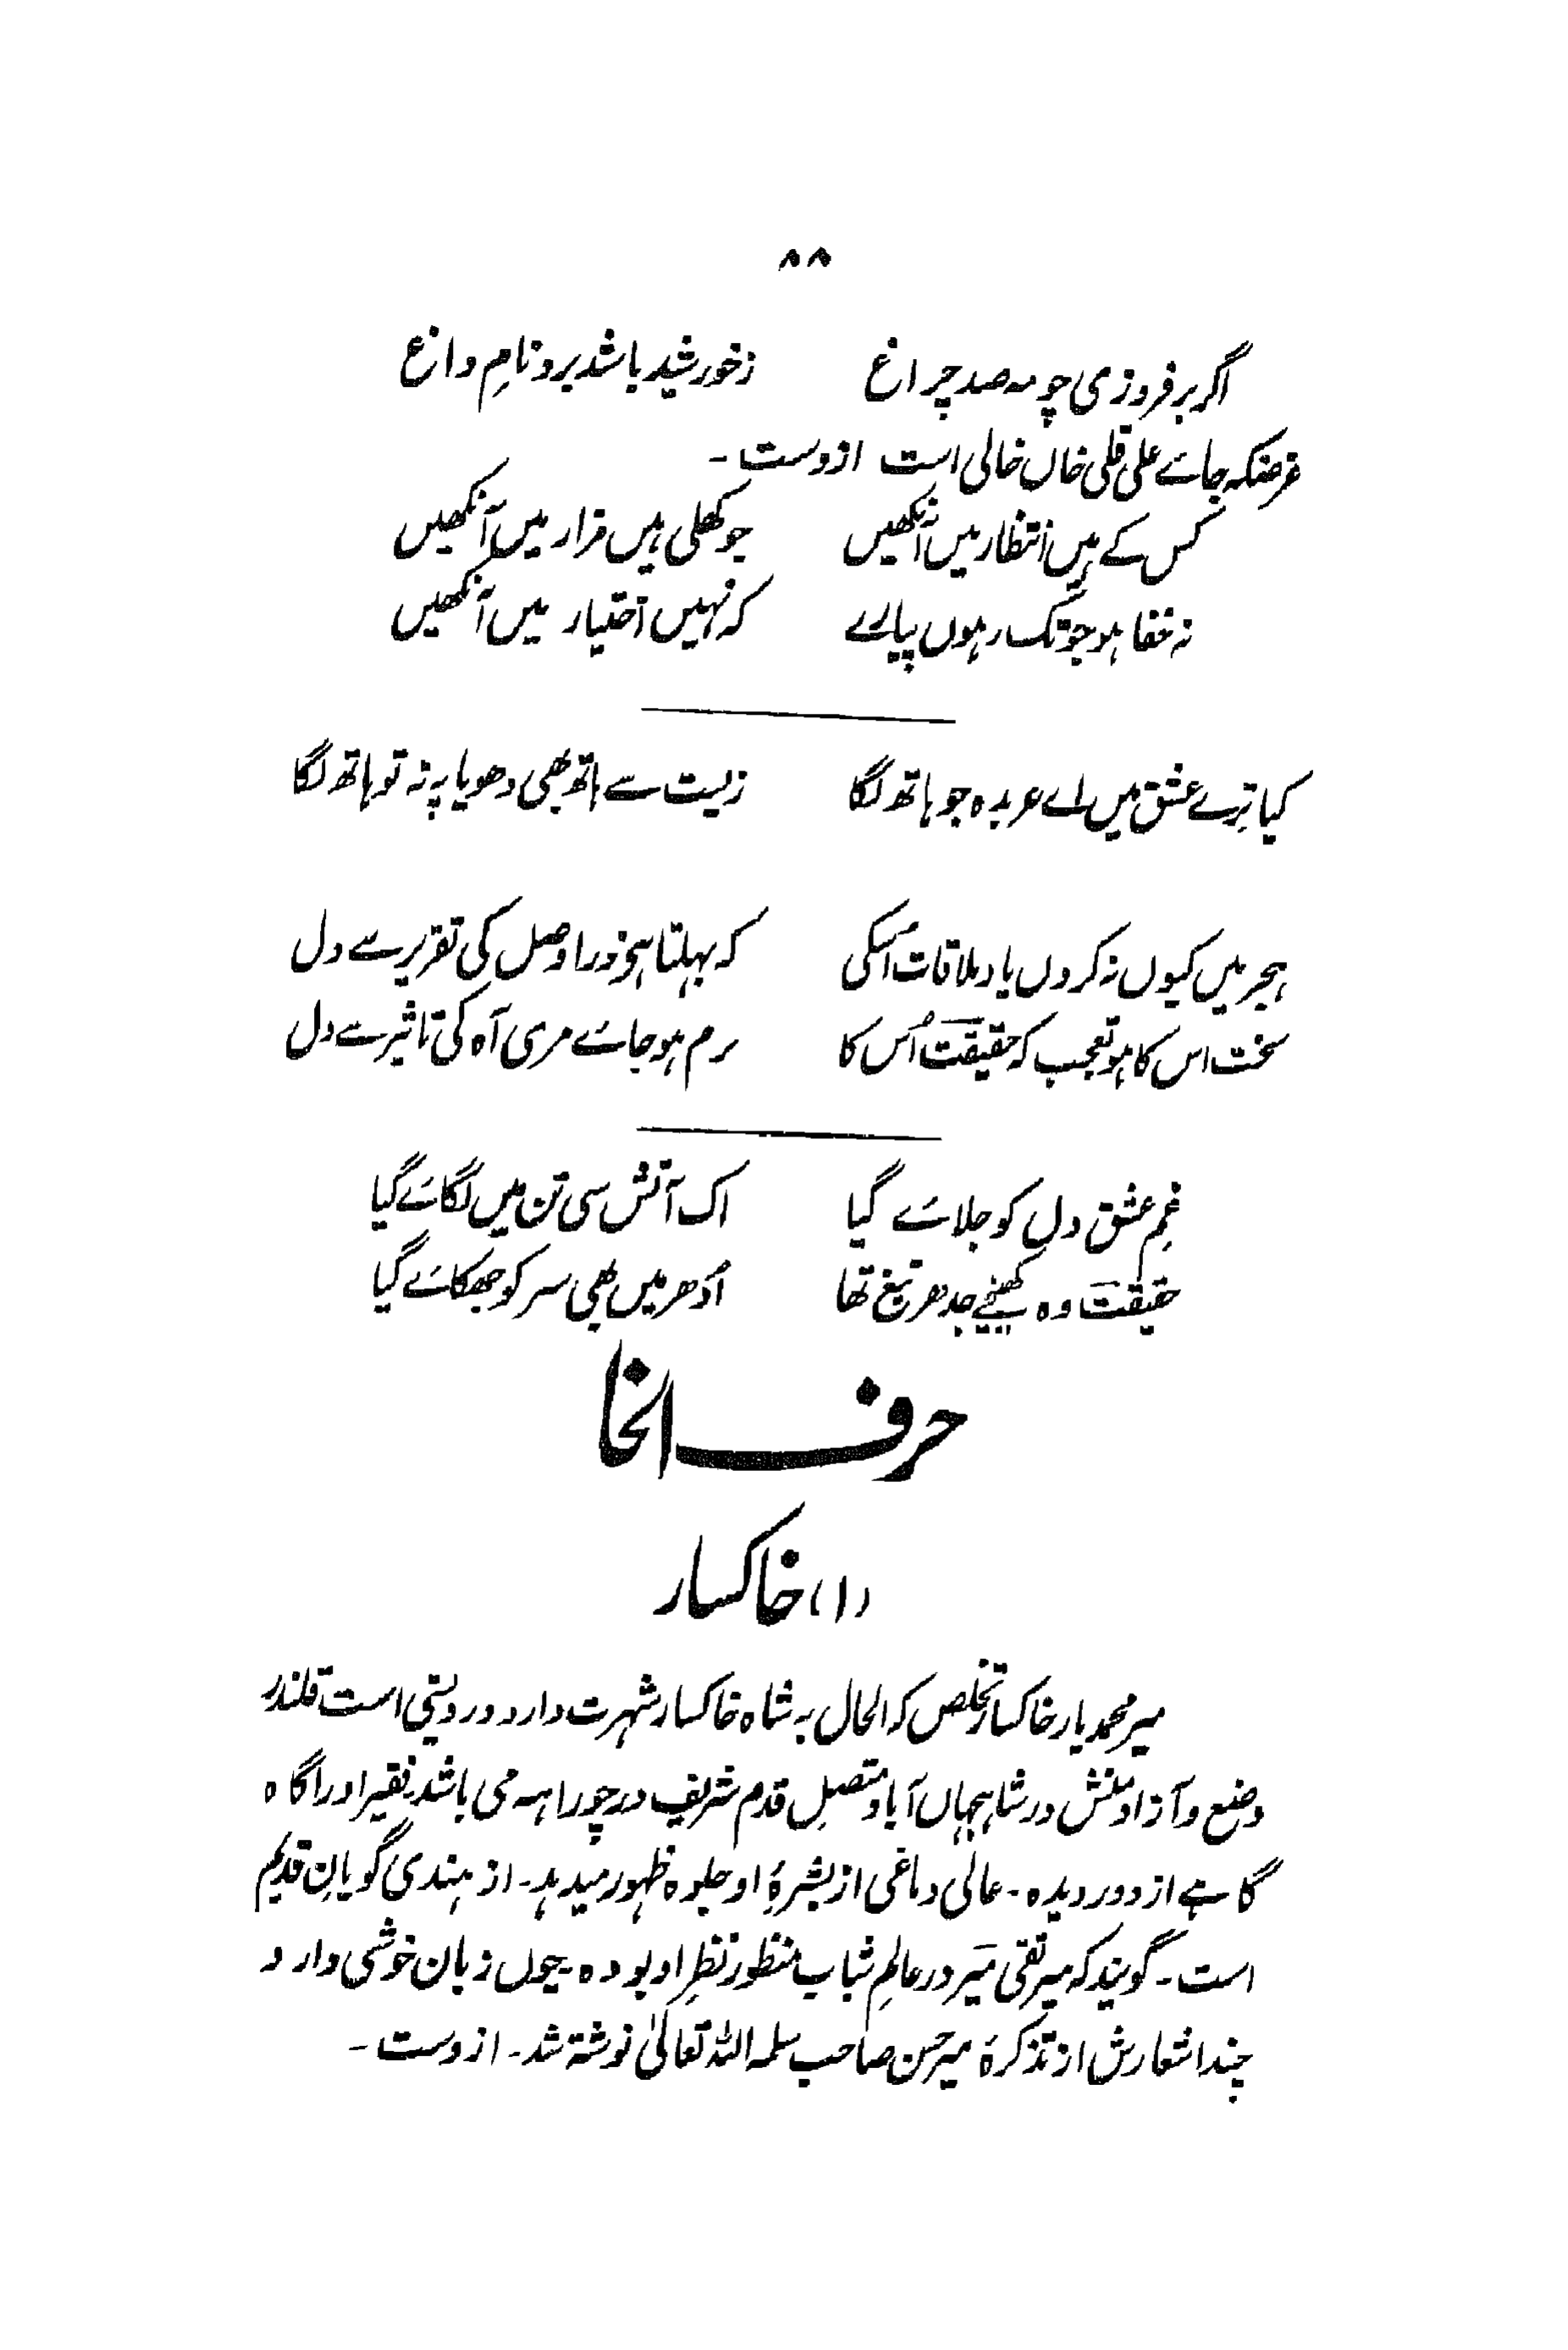 ۸۸
اگر برفروزی چو مہ صد چراغ زخورشید باشد برو نامِ داغ
غرضکہ جائے علی قلی خاں خالی است ازوست ۔
کس کے ہیں انتظار میں آنکھیں جو کھلی ہیں مزار میں آنکھیں
نہ خفا ہو جو تک رہوں پیارے کہ نہیں اختیار میں آنکھیں
کیا ترے عشق میں اے عربدہ جو ہاتھ لگا زیست سے ہاتھ بھی دھویا پہ نہ تو ہاتھ لگا
ہجر میں کیوں نہ کروں یاد ملاقات اُسکی کہ بہلتا ہے ذرا وصل کی تقریر سے دل
سخت اس کا ہو تعجب کہ حقیقت اُس کا نرم ہو جائے مری آہ کی تاثیر سے دل
غمِ عشق دل کو جلائے گیا اک آتش سی تن میں لگائے گیا
حقیقت وہ کھینچے جدھر تیغ تھا اُدھر میں بھی سر کو جھکائے گیا
حرف الخا
(۱) خاکسار
میر محمد یار خاکسار تخلص کہ الحال بہ شاہ خاکسار شہرت دارد درویشی است قلندر
وضع و آزاد منش در شاہجہاں آباد متصلِ قدم شریف در چوراہہ می باشد فقیر او را گاہ
گاہے از دور دیدہ ۔ عالی دماغی از بشرۂ او جلوہ ظہور میدہد ۔ از ہندی گویانِ قدیم
است ۔ گویند کہ میر تقی میر در عالمِ شباب منظورِ نظرِ او بودہ ۔ چوں زبان خوشی دارد
چند اشعارش از تذکرۂ میر حسن صاحب سلمہ اللہ تعالیٰ نوشتہ شد ۔ ازوست ۔